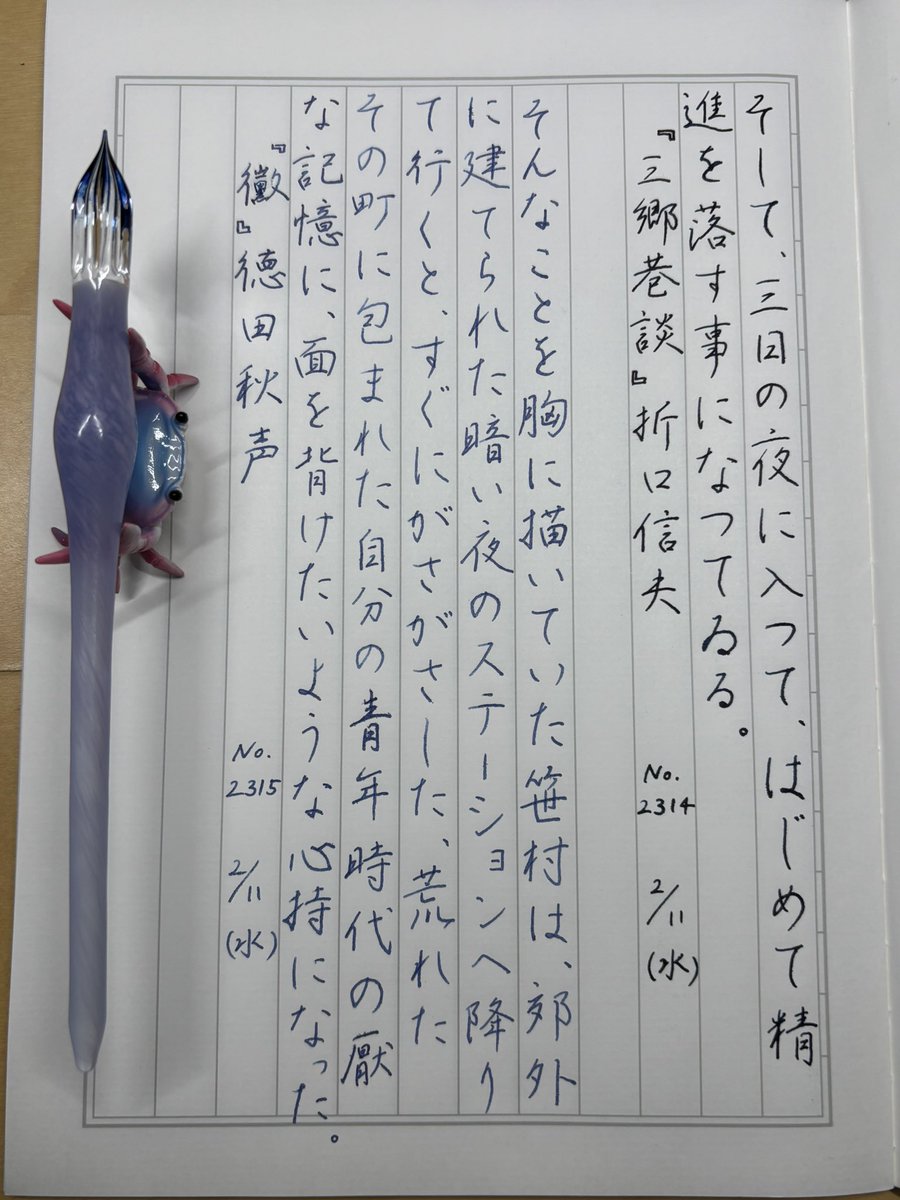 そして、三日の夜に入つて、はじめて精
進を落す事になつてゐる。
『三郷巷談』折口信夫
No.
2314
2/11
(水)
そんなことを胸に描いていた笹村は、郊外
に建てられた暗い夜のステーションへ降り
て行くと、すぐにがさがさした、荒れた
その町に包まれた自分の青年時代の厭
な記憶に、面を背けたいような心持になった。
『黴』徳田秋声
No.
2315
2/11
(水)